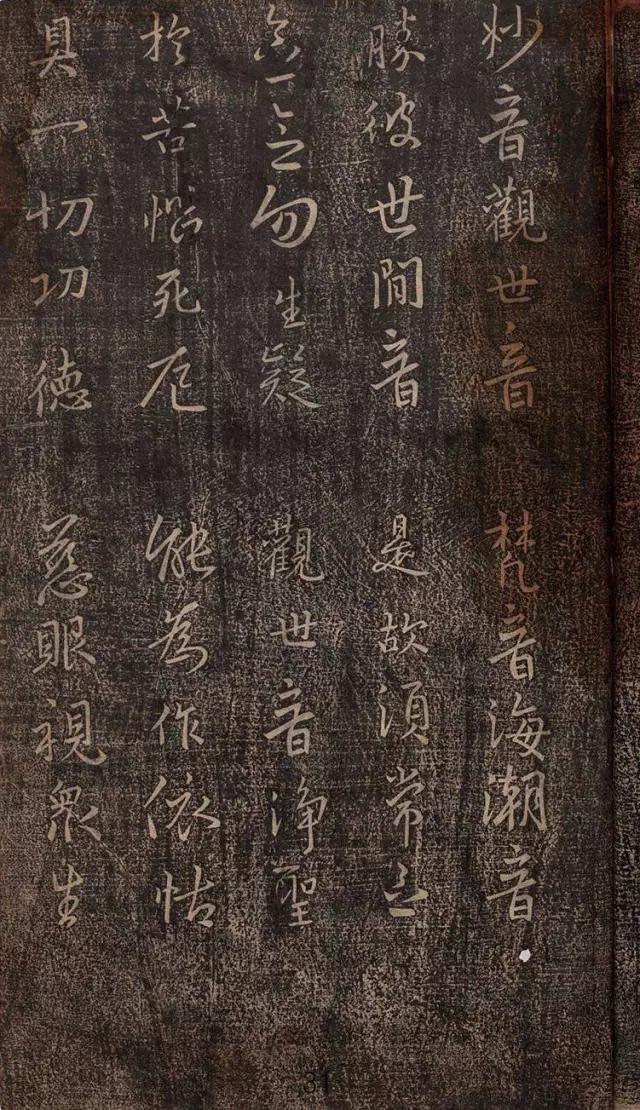 妙音觀世音 梵音海潮音
勝彼世間音 是故須常念
念念勿生疑 觀世音淨聖
於苦惱死厄 能為作依怙
具一切功德 慈眼視眾生
31